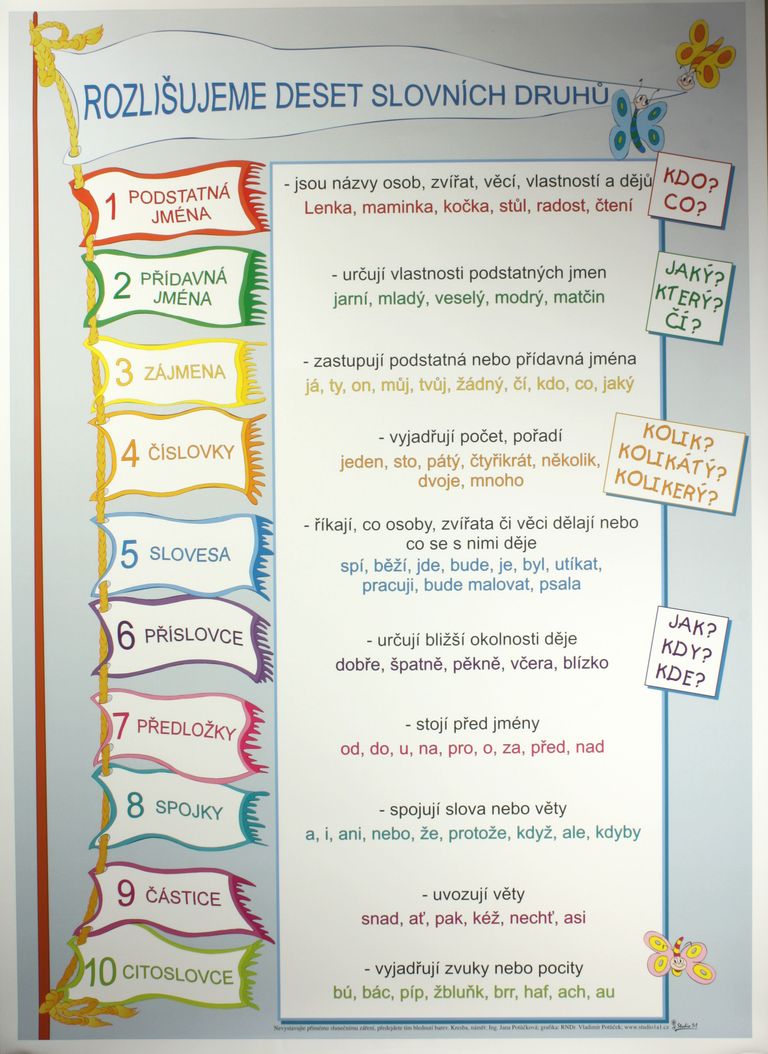 ROZLIŠUJEME DESET SLOVNÍCH DRUHŮ
1 PODSTATNÁ
JMÉNA
- jsou názvy osob, zvířat, věcí, vlastností a dějů
Lenka, maminka, kočka, stůl, radost, čtení
KDO?
CO?
2 PŘÍDAVNÁ
JMÉNA
- určují vlastnosti podstatných jmen
jarní, mladý, veselý, modrý, matčin
JAKÝ?
KTERÝ?
ČÍ?
3 ZÁJMENA
- zastupují podstatná nebo přídavná jména
já, ty, on, můj, tvůj, žádný, čí, kdo, co, jaký
4 ČÍSLOVKY
- vyjadřují počet, pořadí
jeden, sto, pátý, čtyřikrát, několik,
dvoje, mnoho
KOLIK?
KOLIKÁTÝ?
KOLIKERÝ?
5 SLOVESA
- říkají, co osoby, zvířata či věci dělají nebo
co se s nimi děje
spí, běží, jde, bude, je, byl, utíkat,
pracuji, bude malovat, psala
6 PŘÍSLOVCE
- určují bližší okolnosti děje
dobře, špatně, pěkně, včera, blízko
JAK?
KDY?
KDE?
7 PŘEDLOŽKY
- stojí před jmény
od, do, u, na, pro, o, za, před, nad
8 SPOJKY
- spojují slova nebo věty
a, i, ani, nebo, že, protože, když, ale, kdyby
9 ČÁSTICE
- uvozují věty
snad, ať, pak, kéž, nechť, asi
10 CITOSLOVCE
- vyjadřují zvuky nebo pocity
bú, bác, píp, žbluňk, brr, haf, ach, au
Nevystavujte přímému slunečnímu záření, předejdete tím blednutí barev. Kresba, námět: Ing. Jana Potůčková; grafika: RNDr. Vladimír Potůček; www.studio1a1.cz